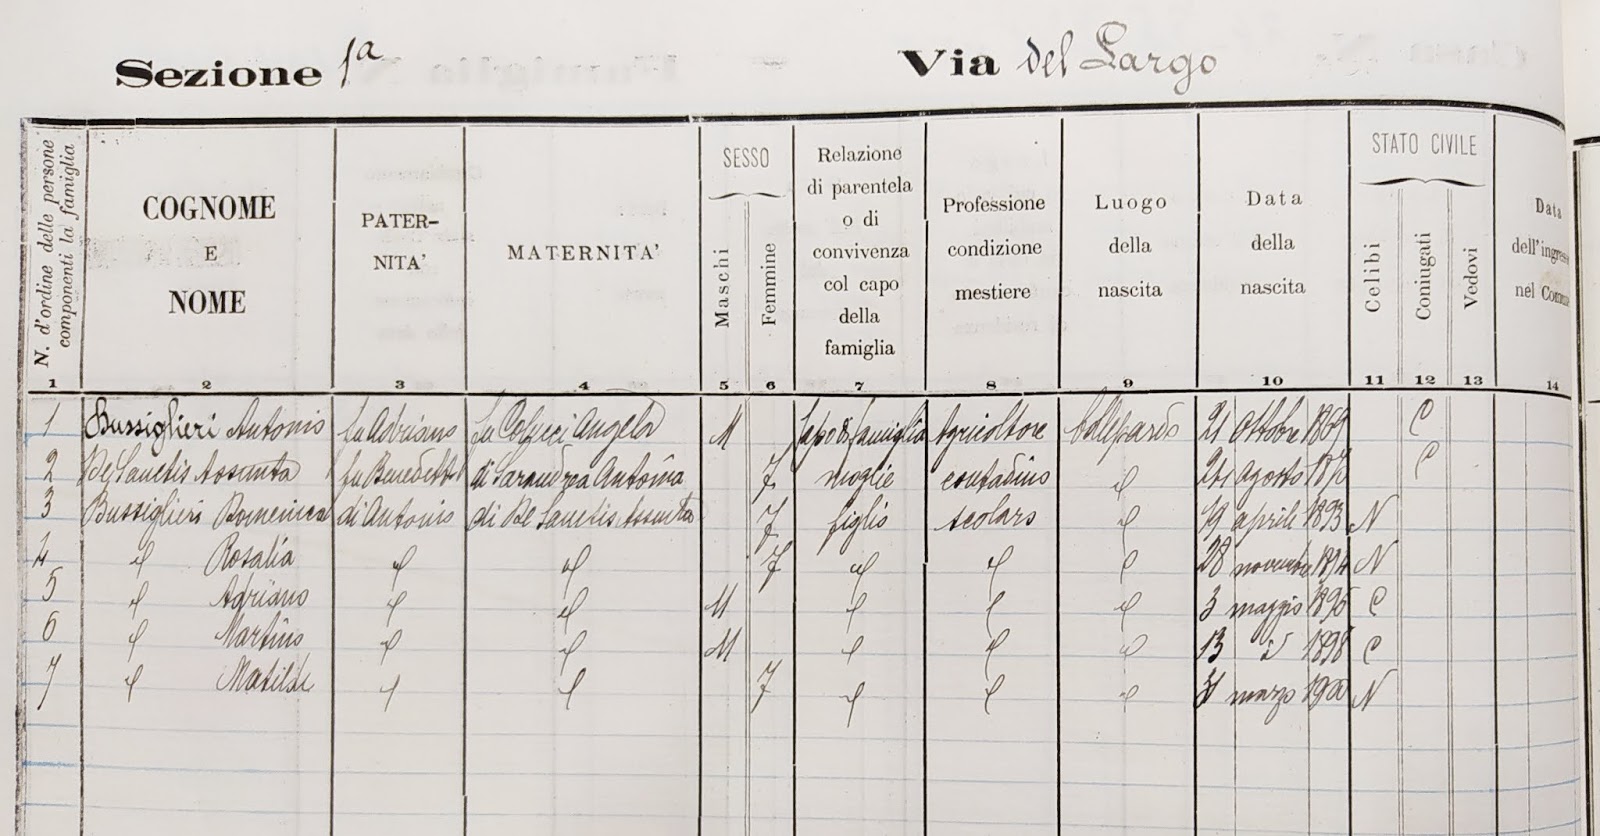 Sezione 1a Via del Largo
N. d'ordine delle persone componenti la famiglia
COGNOME E NOME
PATER-NITA'
MATERNITA'
SESSO
Maschi
Femmine
Relazione di parentela o di convivenza col capo della famiglia
Professione condizione mestiere
Luogo della nascita
Data della nascita
STATO CIVILE
Celibi
Coniugati
Vedovi
Data dell'ingresso nel Comune
1 2 3 4 5 6 7 8 9 10 11 12 13 14
1 Bussiglieri Antonio fu Adriano fu Colucci Angela M Capo di famiglia Agricoltore Collepardo 21 ottobre 1869 C
2 De Sanctis Assunta fu Benedetto di Sarandrea Antonia F moglie contadino " 24 agosto C
3 Bussiglieri Domenica di Antonio di De Sanctis Assunta F figlio scolaro " 19 aprile 1893 N
4 " Rosalia " " F " " " 28 novembre 1894 N
5 " Adriano " " M " " " 3 maggio 1896 C
6 " Martino " " M " " " 13 id 1898 C
7 " Matilde " " F " " " marzo 1900 N